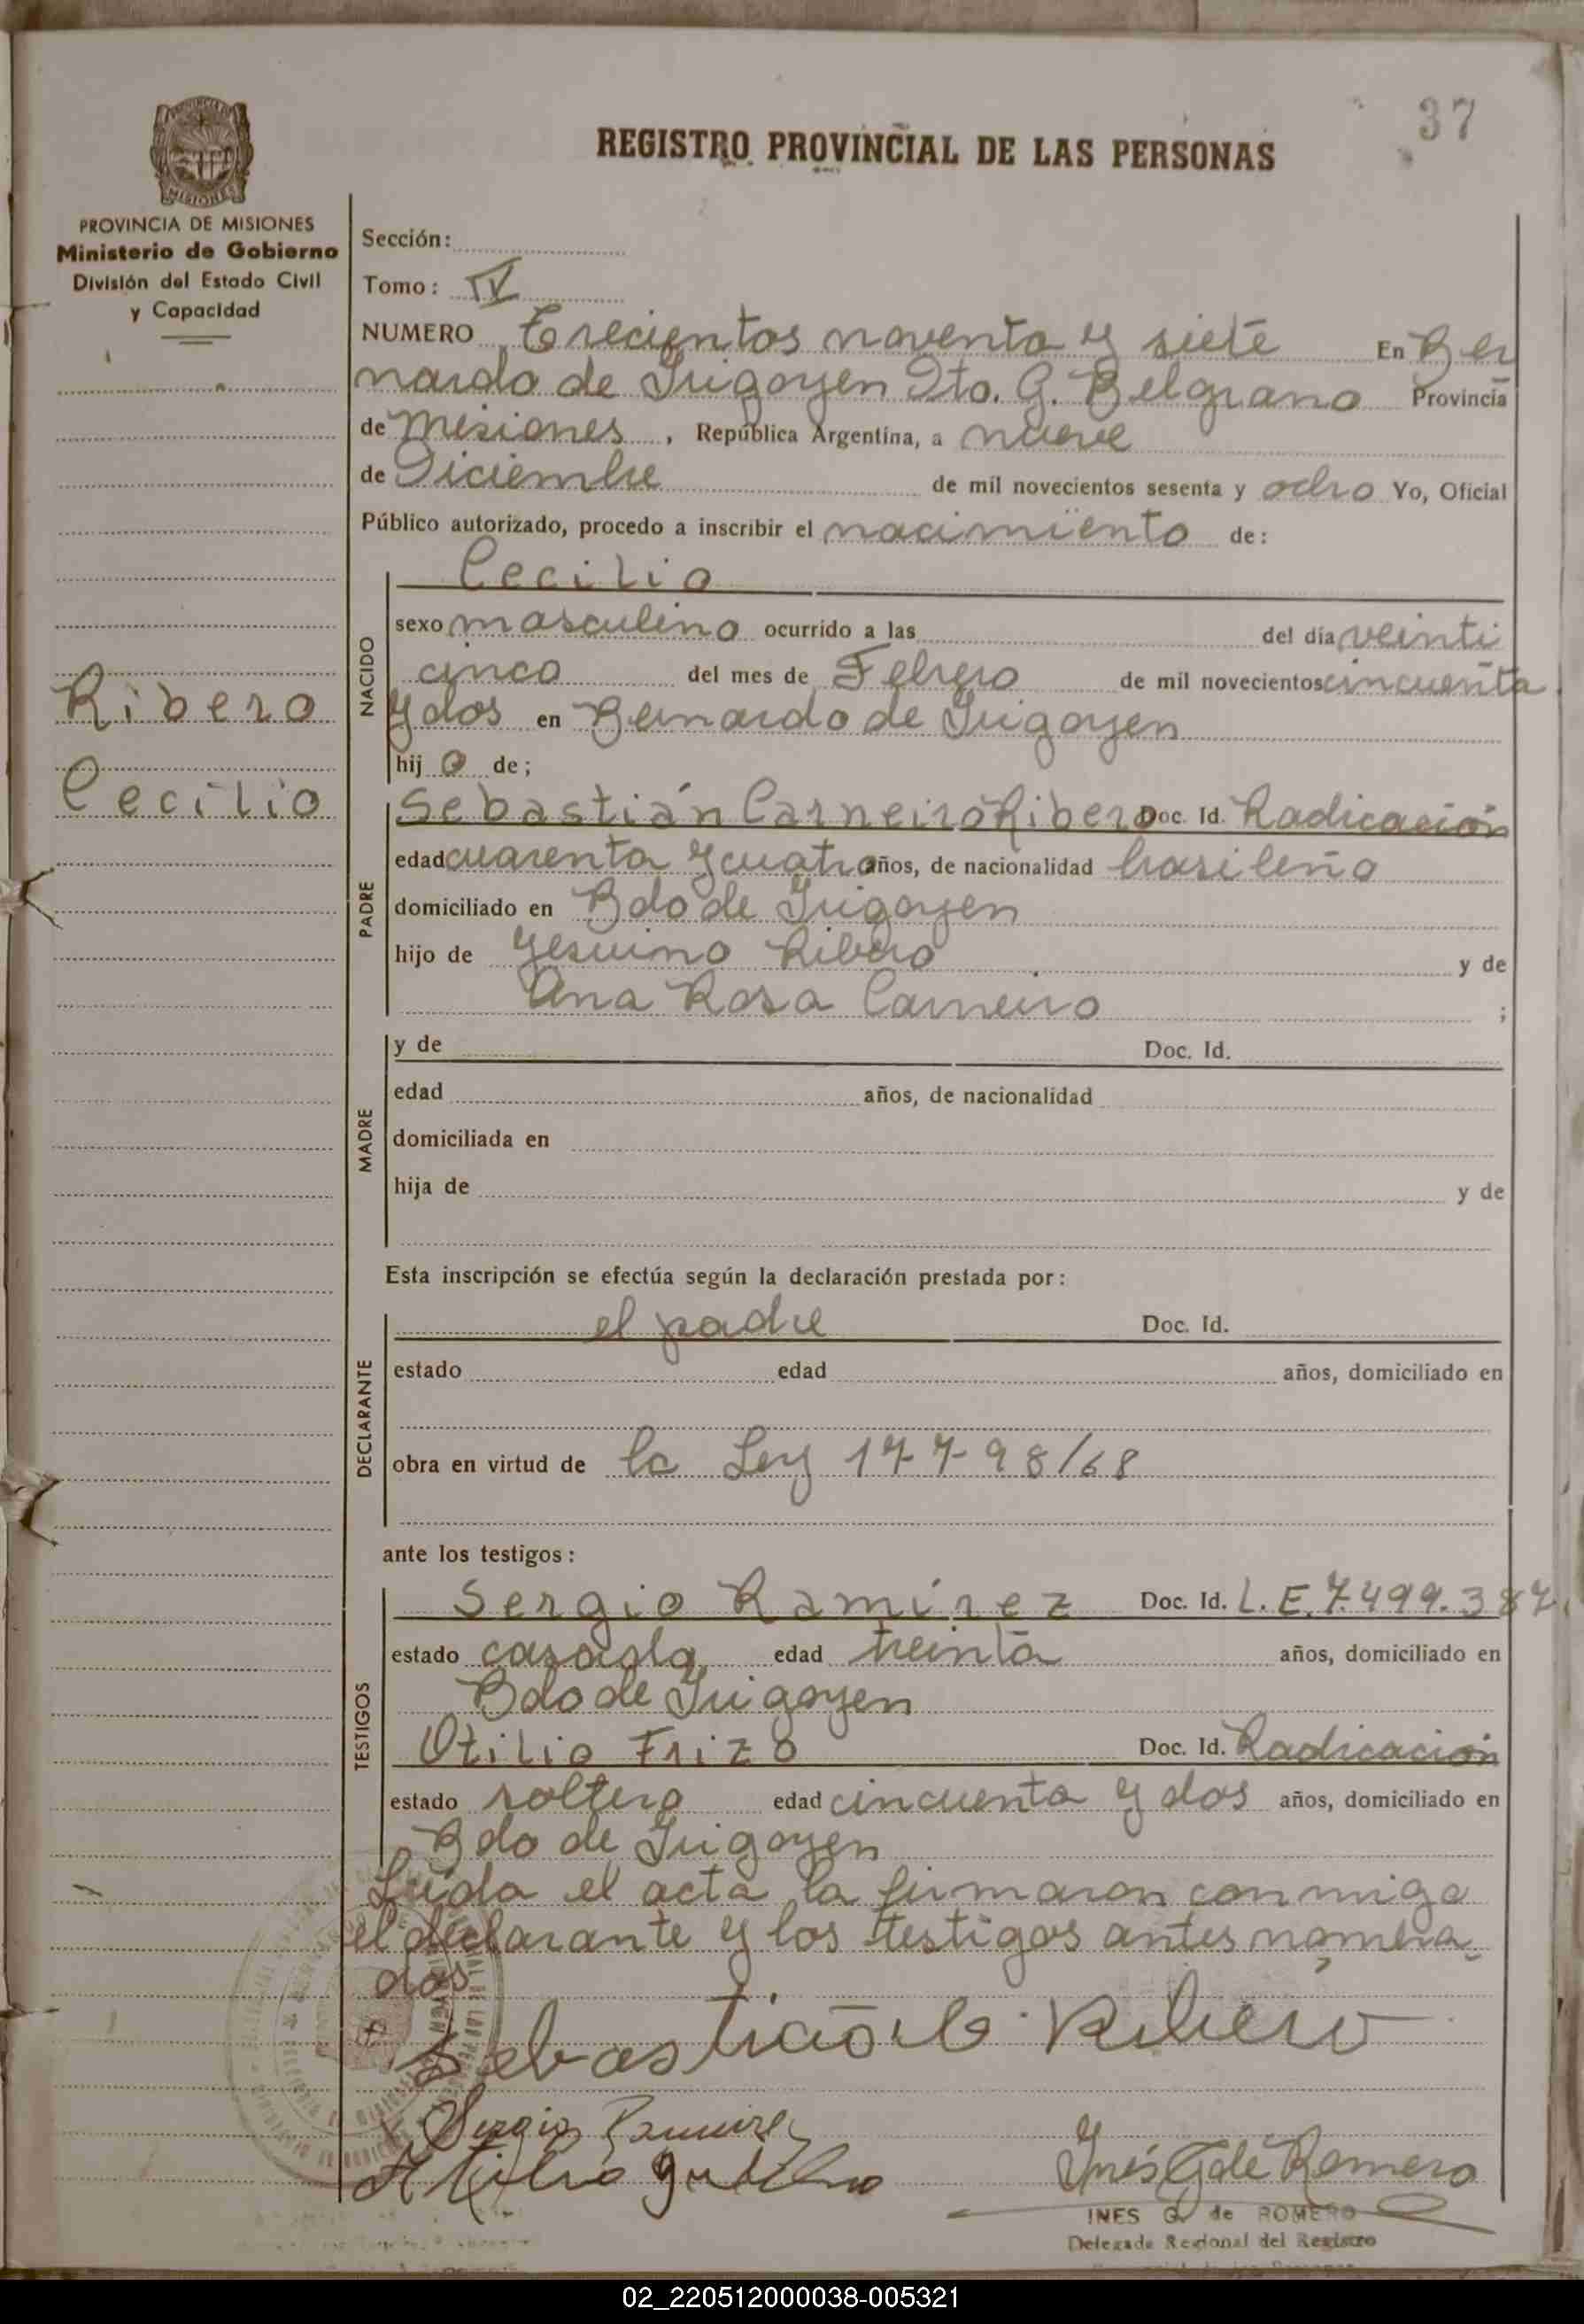 37
REGISTRO PROVINCIAL DE LAS PERSONAS
MISIONES
PROVINCIA DE MISIONES
Ministerio de Gobierno
División del Estado Civil
y Capacidad
Ribero
Cecilio
Sección:
Tomo: IV
NUMERO Trecientos noventa y siete En Ber
nardo de Irigoyen Dto. G. Belgrano Provincia
de Misiones, República Argentina, a nueve
de Diciembre de mil novecientos sesenta y ocho Yo, Oficial
Público autorizado, procedo a inscribir el nacimiento de:
NACIDO
Cecilio
sexo masculino ocurrido a las del día veinti
cinco del mes de Febrero de mil novecientos cincuenta
y dos en Bernardo de Irigoyen
hij o de;
PADRE
Sebastián Carneiro Ribero Doc. Id. Radicación
edad cuarenta y cuatro años, de nacionalidad brasileña
domiciliado en Bdo de Irigoyen
hijo de Jesuino Ribero y de
Ana Rosa Carneiro ;
MADRE
y de Doc. Id.
edad años, de nacionalidad
domiciliada en
hija de y de
Esta inscripción se efectúa según la declaración prestada por:
DECLARANTE
el padre Doc. Id.
estado edad años, domiciliado en
obra en virtud de la Ley 17798/68
ante los testigos:
TESTIGOS
Sergio Ramírez Doc. Id. L.E. 7.499.387
estado casado edad treinta años, domiciliado en
Bdo de Irigoyen
Otilio Frizo Doc. Id. Radicación
estado soltero edad cincuenta y dos años, domiciliado en
Bdo de Irigoyen
Leída el acta la firmaron conmigo
el declarante y los testigos antes nombra
dos
Sebastião Ribero
Sergio Ramirez
Inés G de Romero
INES G. de ROMERO
Delegada Regional del Registro
02_220512000038-005321